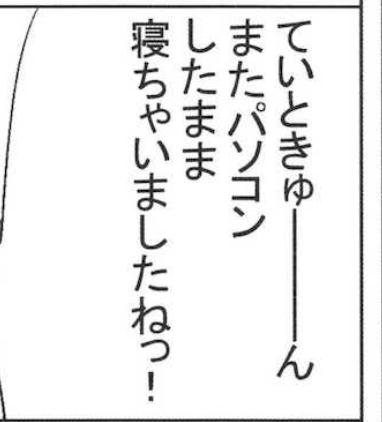 ていときゅ―――ん
またパソコン
したまま
寝ちゃいましたねっ!